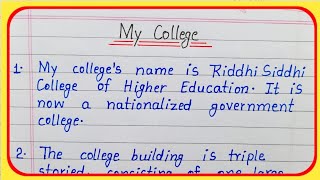 My College
1. My college's name is Riddhi Siddhi
College of Higher Education. It is
now a nationalized government
college.
2. The college building is triple
storied, consisting of one large